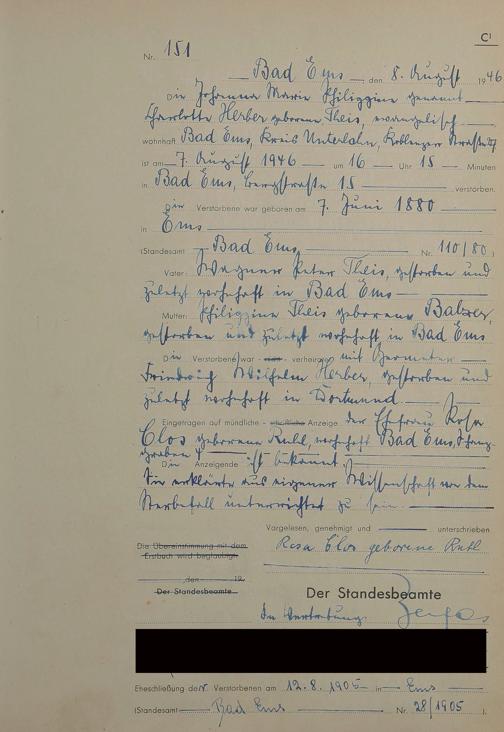 C1
Nr. 151
Bad Ems, den 8. August 1946
Die Johanna Marie Philippine genannt
Charlotte Herber geborene Theis, evangelisch
wohnhaft Bad Ems, Kreis Unterlahn, Koblenzer Straße
ist am 7. August 1946 um 16 Uhr 15 Minuten
in Bad Ems, Bergstraße 15 verstorben.
Die Verstorbene war geboren am 7. Juni 1880
in Ems
(Standesamt Bad Ems Nr. 110/80)
Vater: Wagner Peter Theis, gestorben und
zuletzt wohnhaft in Bad Ems
Mutter: Philippine Theis geborene Balzer,
gestorben und zuletzt wohnhaft in Bad Ems
Die Verstorbene war verheiratet mit
Friedrich Wilhelm Herber, gestorben und
zuletzt wohnhaft in Dortmund.
Eingetragen auf mündliche - schriftliche Anzeige der Ehefrau Rosa
Clos geborene Ruhl, wohnhaft Bad Ems,
graben
Die Anzeigende ist bekannt.
Sie erklärte aus eigener Wissenschaft von dem
Sterbefall unterrichtet zu sein.
Vorgelesen, genehmigt und unterschrieben
Rosa Clos geborene Ruhl
Die Übereinstimmung mit dem
Erstbuch wird beglaubigt
, den 19
Der Standesbeamte
Der Standesbeamte
In Vertretung:
Eheschließung der Verstorbenen am 12.8.1905 in Ems
(Standesamt Bad Ems Nr. 28/1905 ).